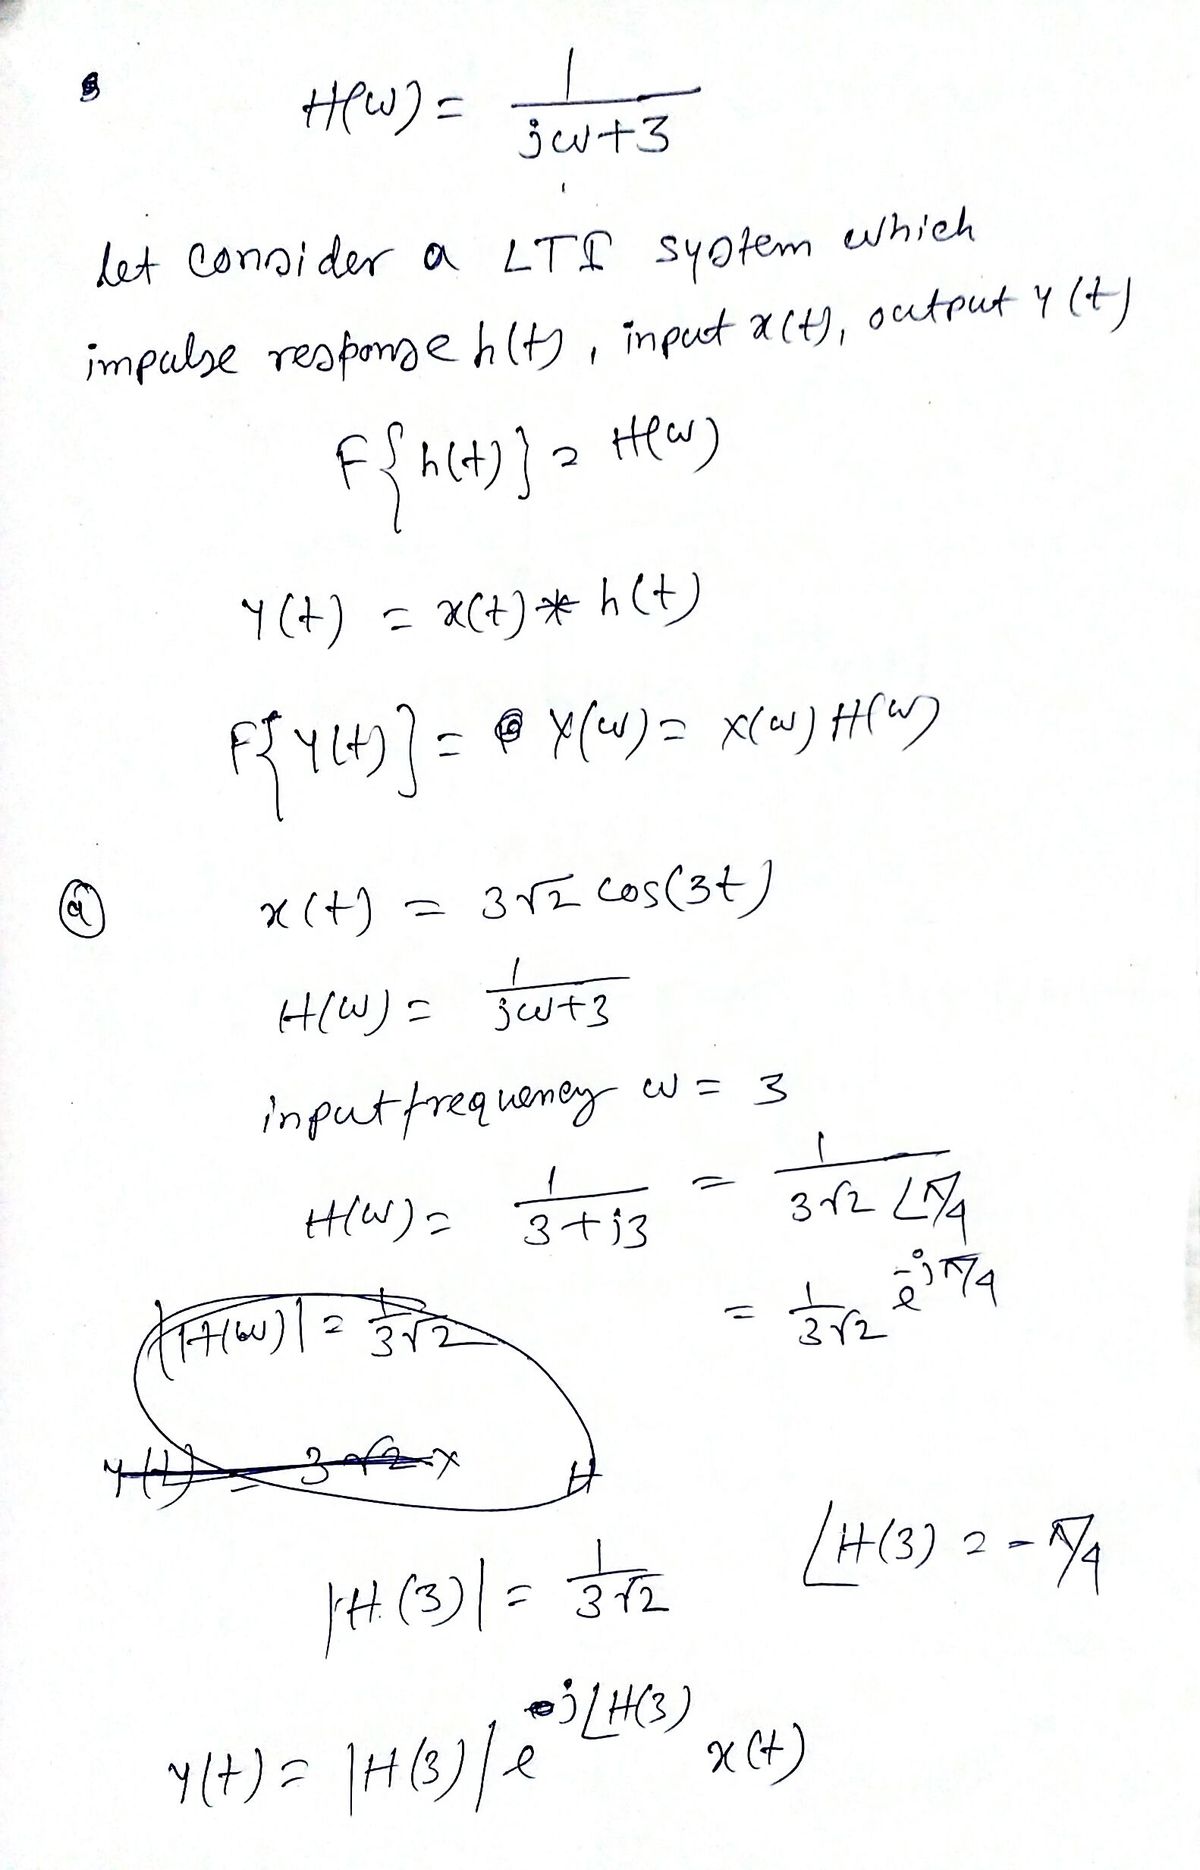 H(ω) = 1/(jω+3)
Let consider a LTI system which
impulse response h(t), input x(t), output y(t)
F{h(t)} = H(ω)
y(t) = x(t) * h(t)
F{y(t)} = Y(ω) = X(ω) H(ω)
(a) x(t) = 3√2 cos(3t)
H(ω) = 1/(jω+3)
input frequency ω = 3
H(ω) = 1/(3+j3) = 1/(3√2 ∠π/4)
= 1/(3√2) e^(-jπ/4)
|H(ω)| = 1/(3√2)
y(t) = 3√2 x
H
|H(3)| = 1/(3√2) ∠H(3) = -π/4
y(t) = |H(3)| e^(j∠H(3)) x(t)